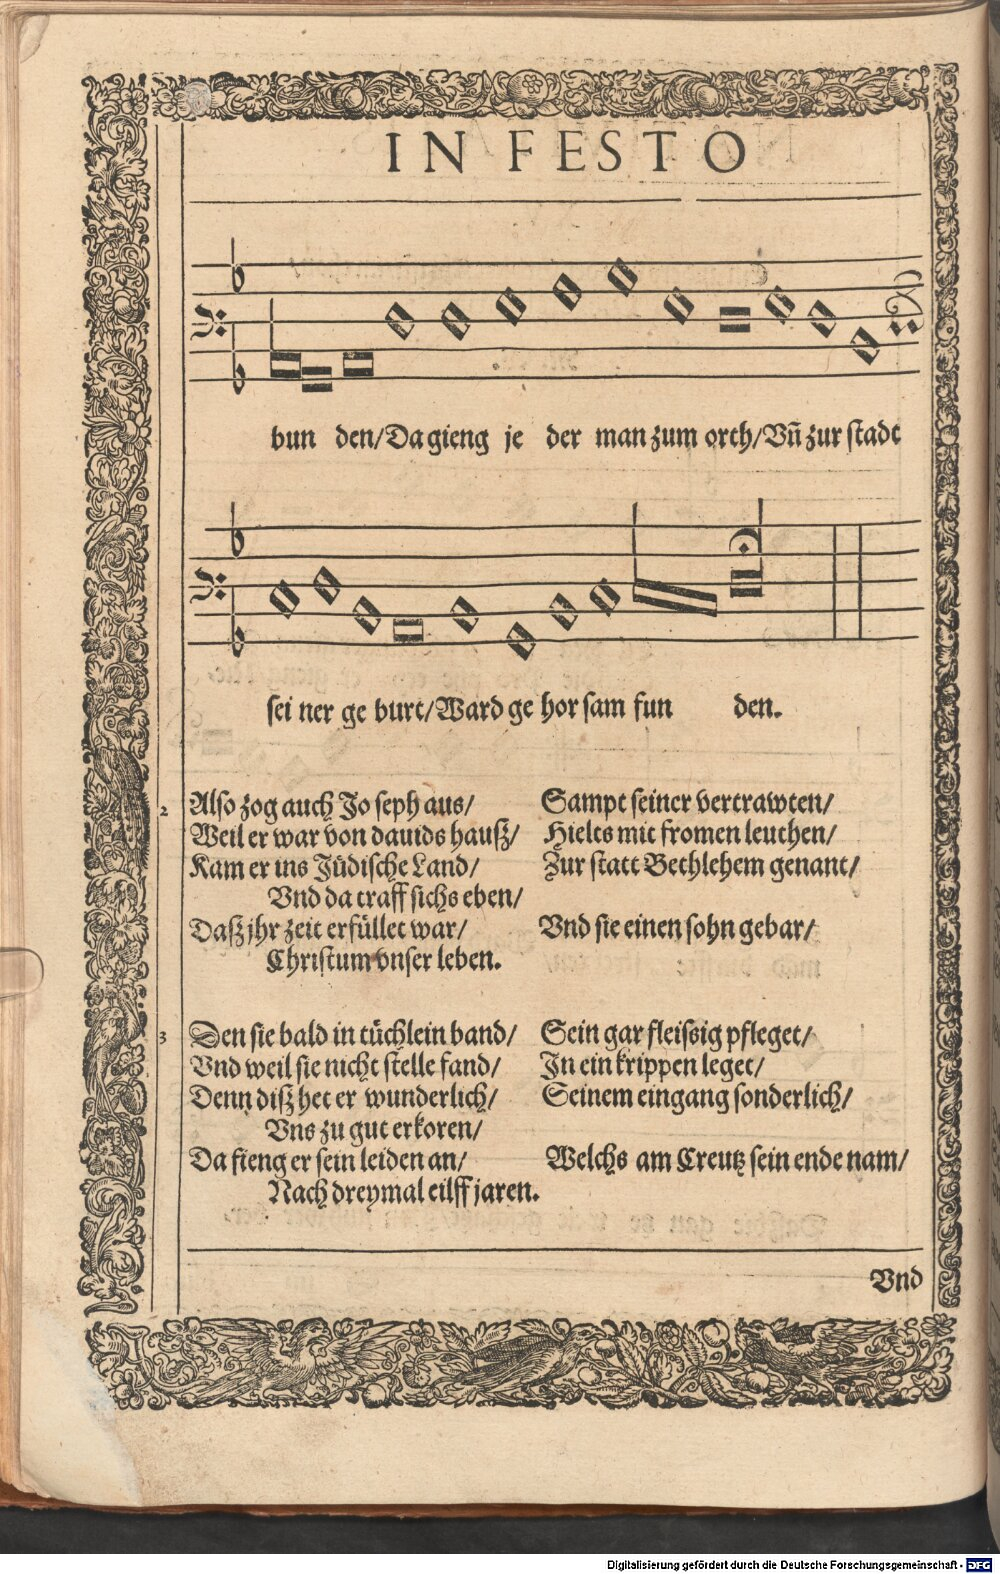 IN FESTO
bun den/ Da gieng je der man zum orth/ Vn̄ zur stadt
sei ner ge burt/ Ward ge hor sam fun den.
2 Also zog auch Jo seph aus/ Sampt seiner vertrawten/
Weil er war von dauids hauß/ Hielts mit fromen leuthen/
Kam er ins Jüdische Land/ Zur statt Bethlehem genant/
Vnd da traff sichs eben/
Daß jhr zeit erfüllet war/ Vnd sie einen sohn gebar/
Christum vnser leben.
3 Den sie bald in tüchlein band/ Sein gar fleissig pfleget/
Vnd weil sie nicht stelle fand/ In ein krippen leget/
Denn diß het er wunderlich/ Seinem eingang sonderlich/
Vns zu gut erkoren/
Da fieng er sein leiden an/ Welchs am Creutz sein ende nam/
Nach dreymal eilff jaren.
Vnd
Digitalisierung gefördert durch die Deutsche Forschungsgemeinschaft - DFG